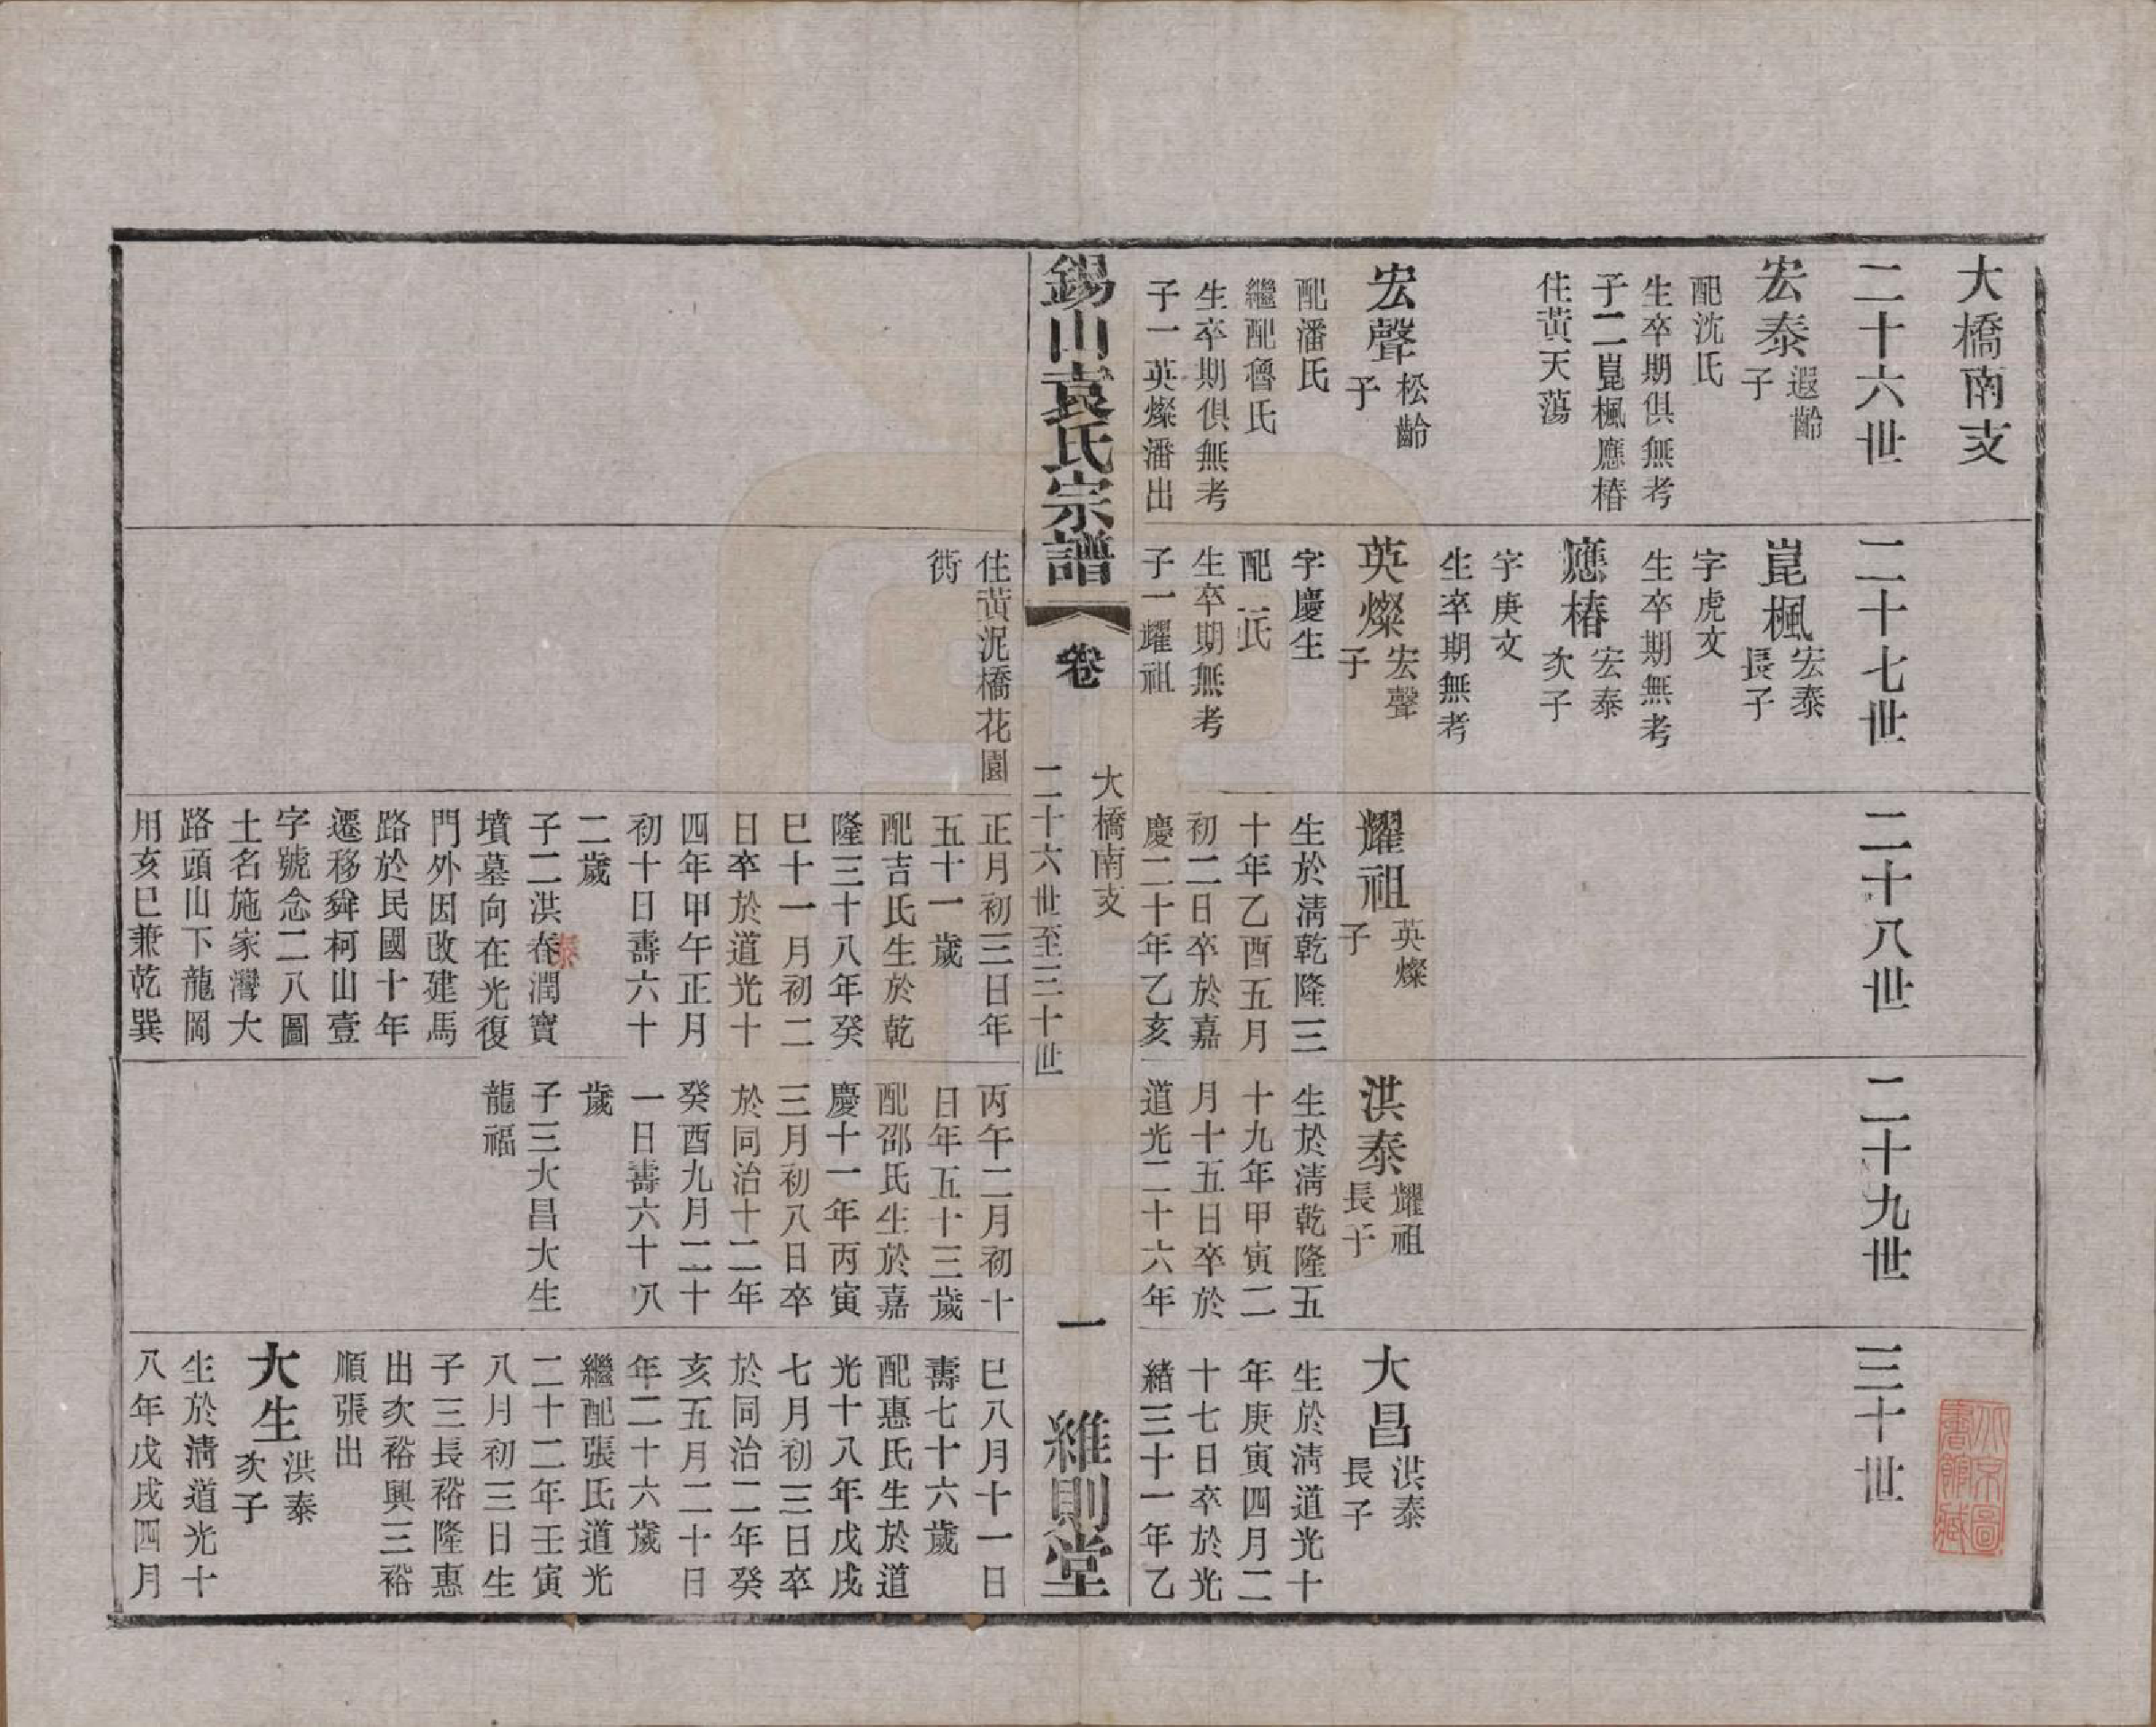 大橋南支
二十六世
宏泰 遐齡子
配沈氏
生卒期俱無考
子二崑楓應椿
住黃天蕩
宏聲 松齡子
配潘氏
繼配魯氏
生卒期俱無考
子一英燦潘出
二十七世
崑楓 宏泰長子
字虎文
生卒期無考
應椿 宏泰次子
字庚文
生卒期無考
英燦 宏聲子
字慶生
配 氏
生卒期無考
子一耀祖
二十八世
耀祖 英燦子
生於淸乾隆三
十年乙酉五月
初二日卒於嘉
慶二十年乙亥
二十九世
洪泰 耀祖長子
生於淸乾隆五
十九年甲寅二
月十五日卒於
道光二十六年
三十世
大昌 洪泰長子
生於淸道光十
年庚寅四月二
十七日卒於光
緒三十一年乙
錫山袁氏宗譜
卷
大橋南支
二十六世至三十世
一
維則堂
住黃泥橋花園
衖
正月初三日年
五十一歲
配吉氏生於乾
隆三十八年癸
巳十一月初二
日卒於道光十
四年甲午正月
初十日壽六十
二歲
子二洪春潤寶
泰
墳墓向在光復
門外因改建馬
路於民國十年
遷移舜柯山壹
字號念二八圖
土名施家灣大
路頭山下龍岡
用亥巳兼乾巽
丙午二月初十
日年五十三歲
配邵氏生於嘉
慶十一年丙寅
三月初八日卒
於同治十二年
癸酉九月二十
一日壽六十八
歲
子三大昌大生
龍福
巳八月十一日
壽七十六歲
配惠氏生於道
光十八年戊戌
七月初三日卒
於同治二年癸
亥五月二十日
年二十六歲
繼配張氏道光
二十二年壬寅
八月初三日生
子三長裕隆惠
出次裕興三裕
順張出
大生 洪泰次子
生於淸道光十
八年戊戌四月